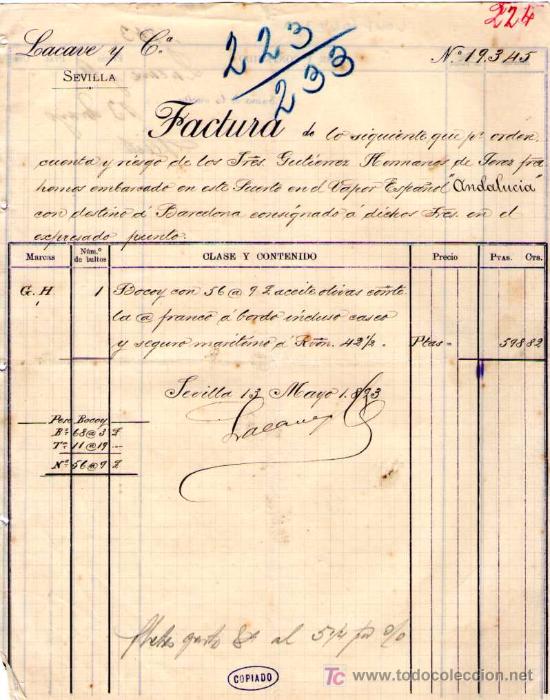 224
Lacave y Cª
SEVILLA
223/233
Nº 19.345
Factura de lo siguiente que pr orden
cuenta y riesgo de los Sres. Gutiérrez Hermanos de Jerez fra
hemos embarcado en este Puerto en el Vapor Español "Andalucia"
con destino á Barcelona consignado á dichos Sres. en el
expresado punto.
Marcas Núm.º de bultos CLASE Y CONTENIDO Precio PTAS. CTS.
G. H 1 Bocoy con 56 @ 9 £ aceite olivas corrte
la @ franco á bordo incluso casco
y seguro maritimo á Rvon. 42½ . Ptas = 598 82
Sevilla 13 Mayo 1.893
Lacave y Cª
Peso Bocoy
Bº 68 @ 3 £
Tª 11 @ 19 -
Nº 56 @ 9 £
al 5 1/4 pr %
COPIADO
TC www.todocoleccion.net